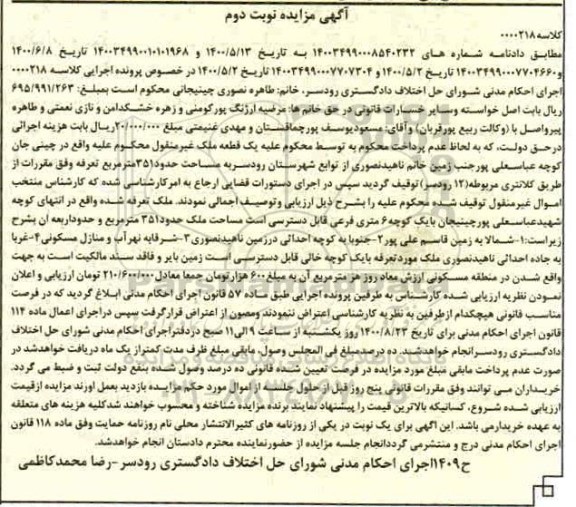 آگهی مزایده نوبت دوم
کلاسه ۰۰۰۰۲۱۸
مطابق دادنامه شماره های ۱۴۰۰۳۴۹۹۰۰۰۸۵۴۰۲۳۲ به تاریخ ۱۴۰۰/۵/۱۳ و ۱۴۰۰۳۴۹۹۰۰۰۱۰۱۰۱۹۶۸ تاریخ ۱۴۰۰/۶/۸
و۱۴۰۰۳۴۹۹۰۰۰۷۷۰۴۶۶۰ تاریخ ۱۴۰۰/۵/۲ و ۱۴۰۰۳۴۹۹۰۰۰۷۷۰۷۳۰۴ تاریخ ۱۴۰۰/۵/۲ در خصوص پرونده اجرایی کلاسه ۰۰۰۰۲۱۸
اجرای احکام مدنی شورای حل اختلاف دادگستری رودسر، خانم: طاهره نصوری چینیجانی محکوم است بمبلغ: ۶۹۵/۹۹۱/۲۶۳
ریال بابت اصل خواسته وسایر خسارات قانونی در حق خانم ها: مرضیه ارژنگ پورکومنی و زهره خشکدامن و نازی نعمتی و طاهره
پیرواصل با (وکالت ربیع پورقربان) و آقای: مسعودیوسف پورچمافستان و مهدی غنیمتی مبلغ ۲۰/۰۰۰/۰۰۰ ریال بابت هزینه اجرائی
درحق دولت، که به لحاظ عدم پرداخت محکوم به توسط محکوم علیه یک قطعه ملک غیرمنقول محکوم علیه واقع در چینی جان
کوچه عباسعلی پورجنب زمین خانم ناهیدنصوری از توابع شهرستان رودسربه مساحت حدود۳۵۱مترمربع تعرفه وفق مقررات از
طریق کلانتری مربوطه(۱۲ رودسر) توقیف گردید سپس در اجرای دستورات قضایی ارجاع به امرکارشناسی شده که کارشناس منتخب
اموال غیرمنقول توقیف شده محکوم علیه را بشرح ذیل ارزیابی وتوصیف اجمالی نمودند. ملک تعرفه شده واقع در انتهای کوچه
شهیدعباسعلی پورچینیجان بایک کوچه ۶ متری فرعی قابل دسترسی است مساحت ملک حدود۳۵۱ مترمربع و حدوداربعه ان بشرح
زیراست:۱-شمالا به زمین قاسم علی پور۲-جنوبا به کوچه احداثی درزمین ناهیدنصوری۳-شرقابه نهرآب و منازل مسکونی۴-غربا
به جاده احداثی ناهیدنصوری ملک موردتعرفه بایک کوچه خالی قابل دسترسی است زمین بایر و فاقد سند مالکیت است به جهت
واقع شدن در منطقه مسکونی ارزش معاد روز هر مترمربع آن به مبلغ ۶۰۰ هزارتومان جمعا معادل ۲۱۰/۶۰۰/۰۰۰ تومان ارزیابی و اعلان
نمودن نظریه ارزیابی شده کارشناس به طرفین پرونده اجرایی طبق ماده ۵۷ قانون اجرای احکام مدنی ابلاغ گردید که در فرصت
مناسب قانونی هیچکدام ازطرفین به نظریه کارشناسی اعتراض ننمودند ومصون از اعتراض قرارگرفت سپس دراجرای اعمال ماده ۱۱۴
قانون اجرای احکام مدنی برای تاریخ ۱۴۰۰/۸/۲۳ روز یکشنبه از ساعت ۹ الی۱۱ صبح دردفتراجرای احکام مدنی شورای حل اختلاف
دادگستری رودسرانجام خواهدشد. ده درصدمبلغ فی المجلس وصول مابقی مبلغ ظرف مدت کمتراز یک ماه دریافت خواهدشد در
صورت عدم پرداخت مابقی مبلغ مورد مزایده در فرصت تعیین شده قانونی ده درصد وصول شده بنفع دولت ثبت و ضبط می گردد.
خریداران می توانند وفق مقررات قانونی پنج روز قبل از حلول جلسه از اموال مورد حکم مزایده بازدید بعمل اورند مزایده ازقیمت
ارزیابی شده شروع، کسانیکه بالاترین قیمت را پیشنهاد نمایند برنده مزایده شناخته و محسوب خواهند شدکلیه هزینه های متعلقه
به عهده خریدارمی باشد. این اگهی برای یک نوبت در یکی از روزنامه های کثیرالانتشار محلی نام روزنامه حمایت وفق ماده ۱۱۸ قانون
اجرای احکام مدنی درج و منتشرمی گرددانجام جلسه مزایده از حضورنماینده محترم دادستان انجام خواهدشد.
ح۱۴۰۹اجرای احکام مدنی شورای حل اختلاف دادگستری رودسر-رضا محمدکاظمی